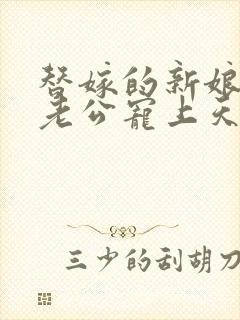 替嫁的新娘
老公宠上天
三少的刮胡刀